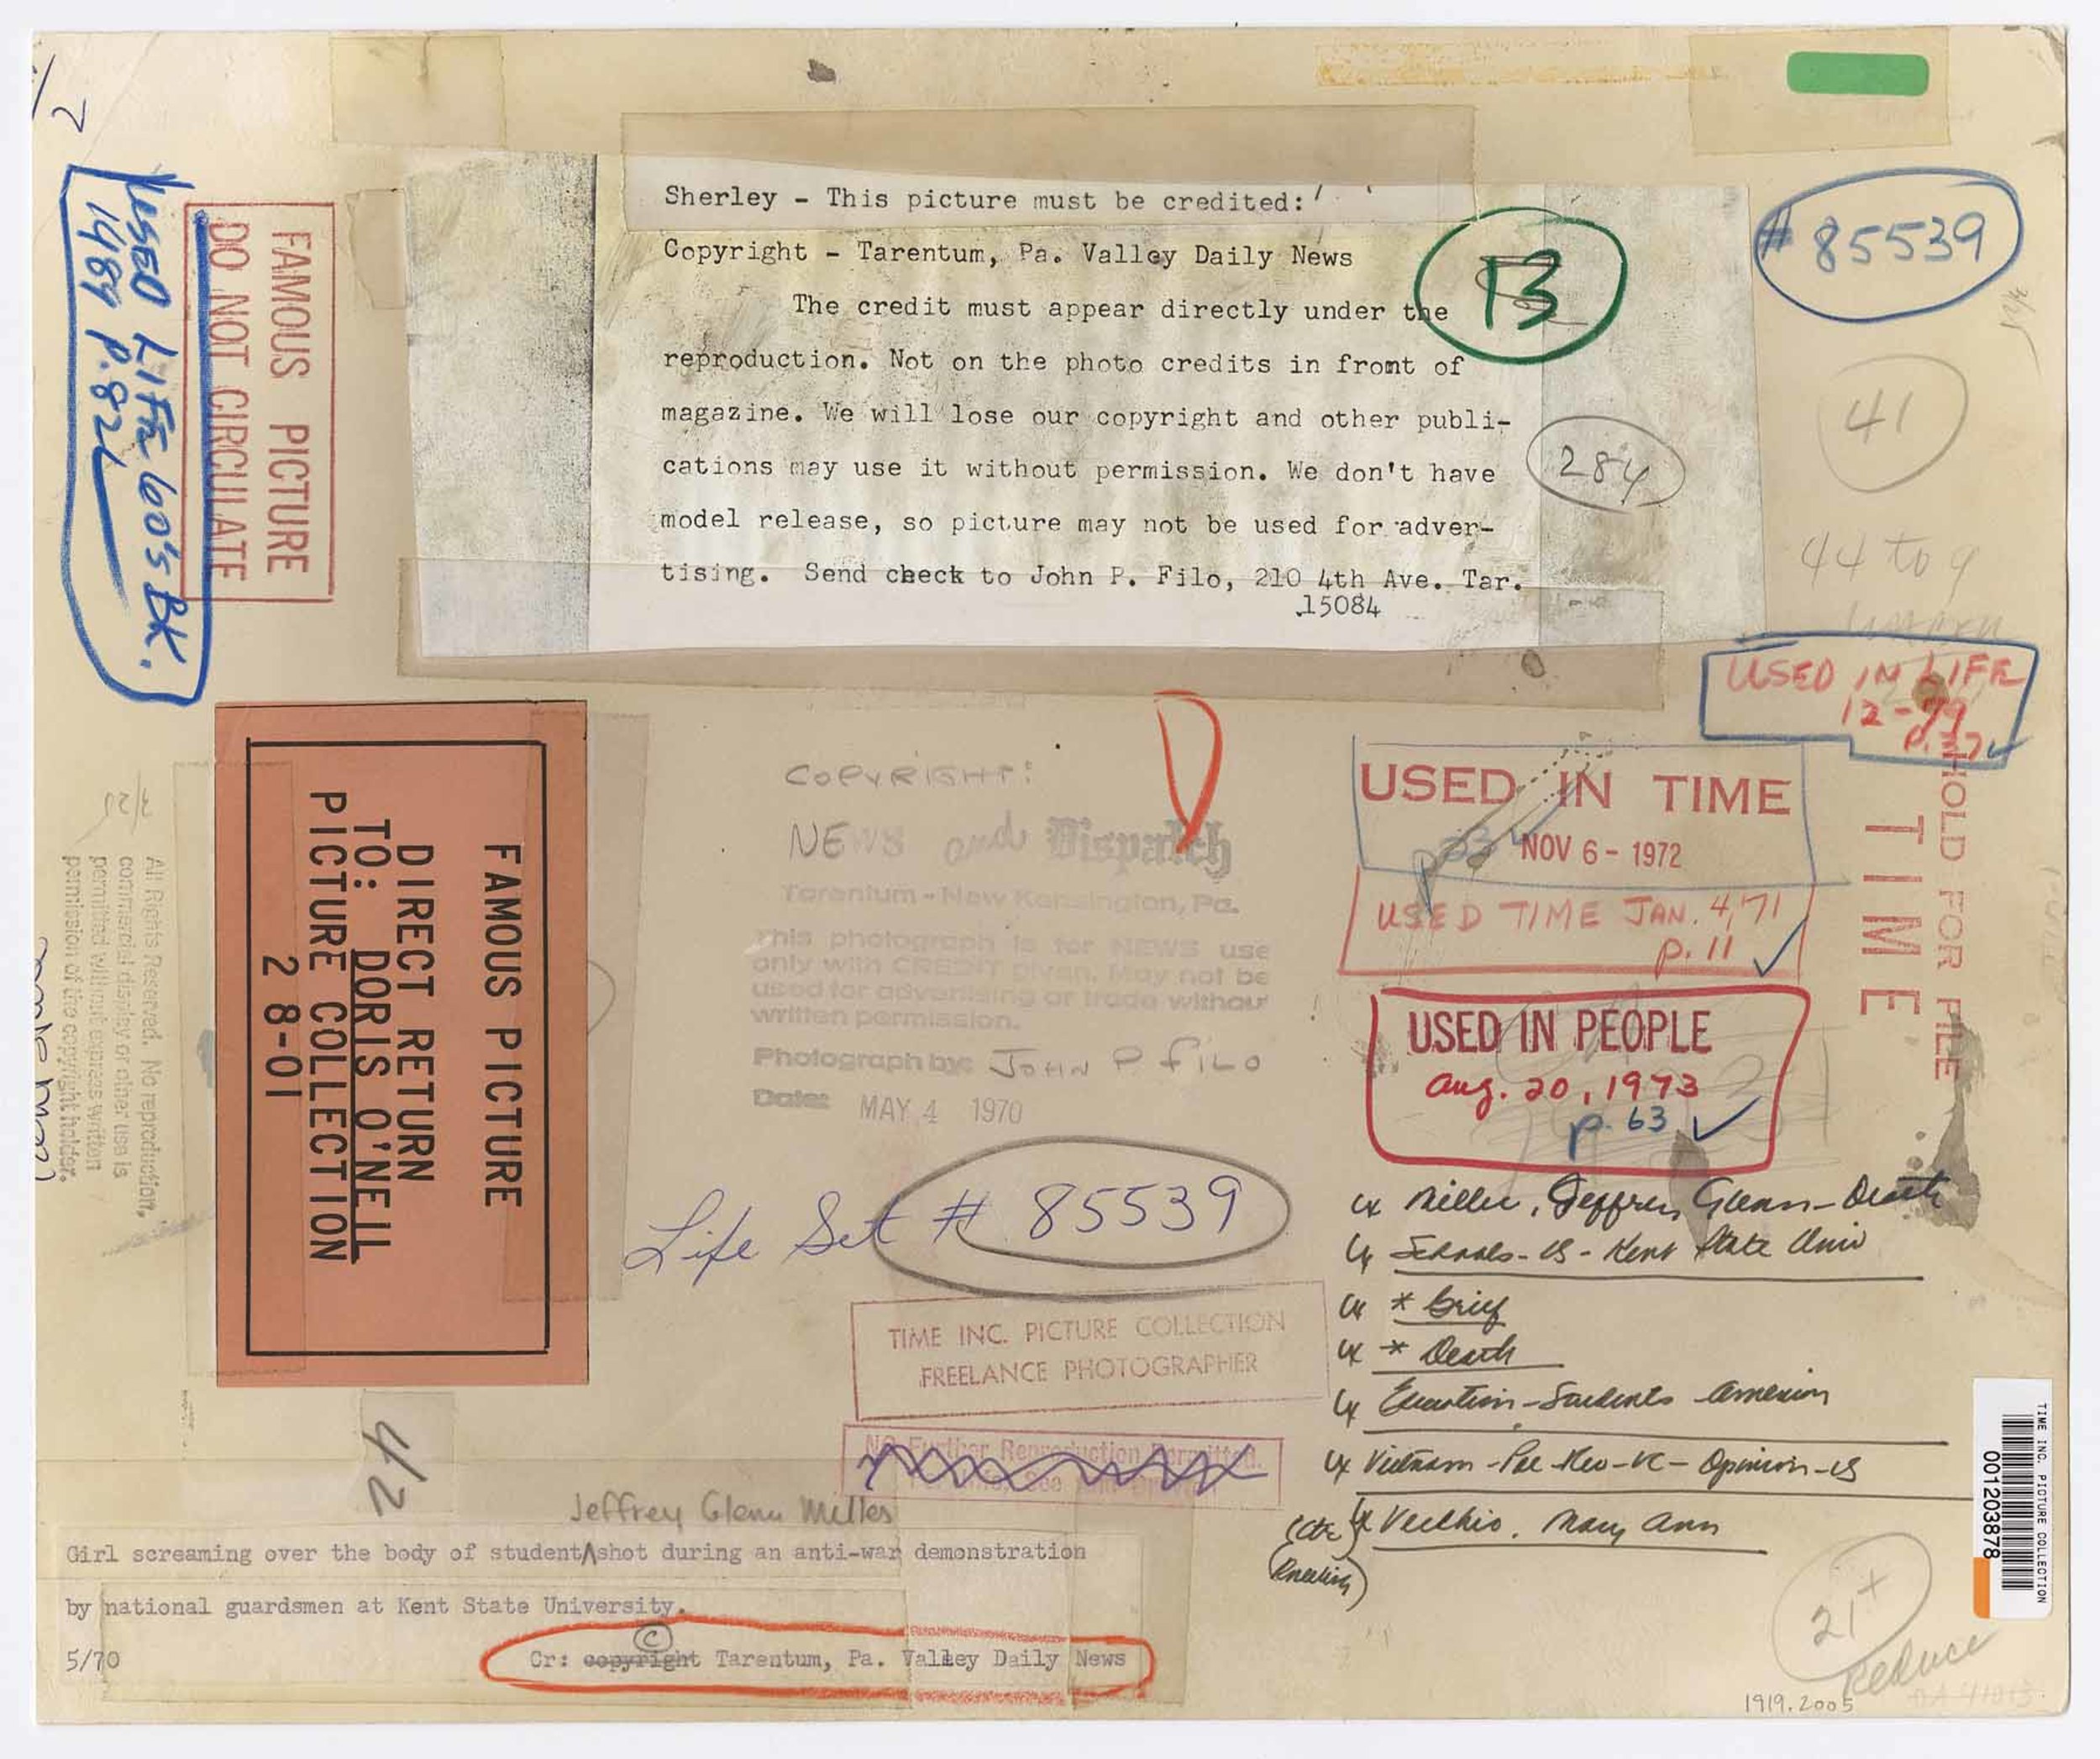 Sherley - This picture must be credited:
Copyright - Tarentum, Pa. Valley Daily News
The credit must appear directly under the
reproduction. Not on the photo credits in fromt of
magazine. We will lose our copyright and other publi-
cations may use it without permission. We don't have
model release, so picture may not be used for adver-
tising. Send check to John P. Filo, 210 4th Ave. Tar.
15084
13
284
# 85539
3/25
41
44 to 9
USED IN LIFE
12-79
USED LIFE 60's BK.
1989 P.82
FAMOUS PICTURE
DO NOT CIRCULATE
FAMOUS PICTURE
DIRECT RETURN
TO: DORIS O'NEIL
PICTURE COLLECTION
2 8-01
3/25
All Rights Reserved. No reproduction,
commercial display or other use is
permitted without express written
permission of the copyright holder.
COPYRIGHT:
NEWS and Dispatch
Tarentum - New Kensington, Pa.
This photograph is for NEWS use
only with CREDIT given. May not be
used for advertising or trade without
written permission.
Photograph by: JOHN P FILO
Date: MAY 4 1970
D
USED IN TIME
NOV 6 - 1972
USED TIME JAN. 4, 71
p. 11
USED IN PEOPLE
Aug. 20, 1973
p. 63
HOLD FOR FILE
TIME
Life Set # 85539
TIME INC. PICTURE COLLECTION
FREELANCE PHOTOGRAPHER
No Further Reproduction Permitted.
cx Miller, Jeffrey Glenn - Death
cx Schools - US - Kent State Univ
cx * Grief
cx * Death
cx Education - Students American
cx Vietnam - Opinion - US
cx Vecchio, Mary Ann
(kneeling)
42
Jeffrey Glenn Miller
Girl screaming over the body of student shot during an anti-war demonstration
by national guardsmen at Kent State University.
5/70
Cr: copyright © Tarentum, Pa. Valley Daily News
TIME INC. PICTURE COLLECTION
001203878
21+
Reduce
1919.2005